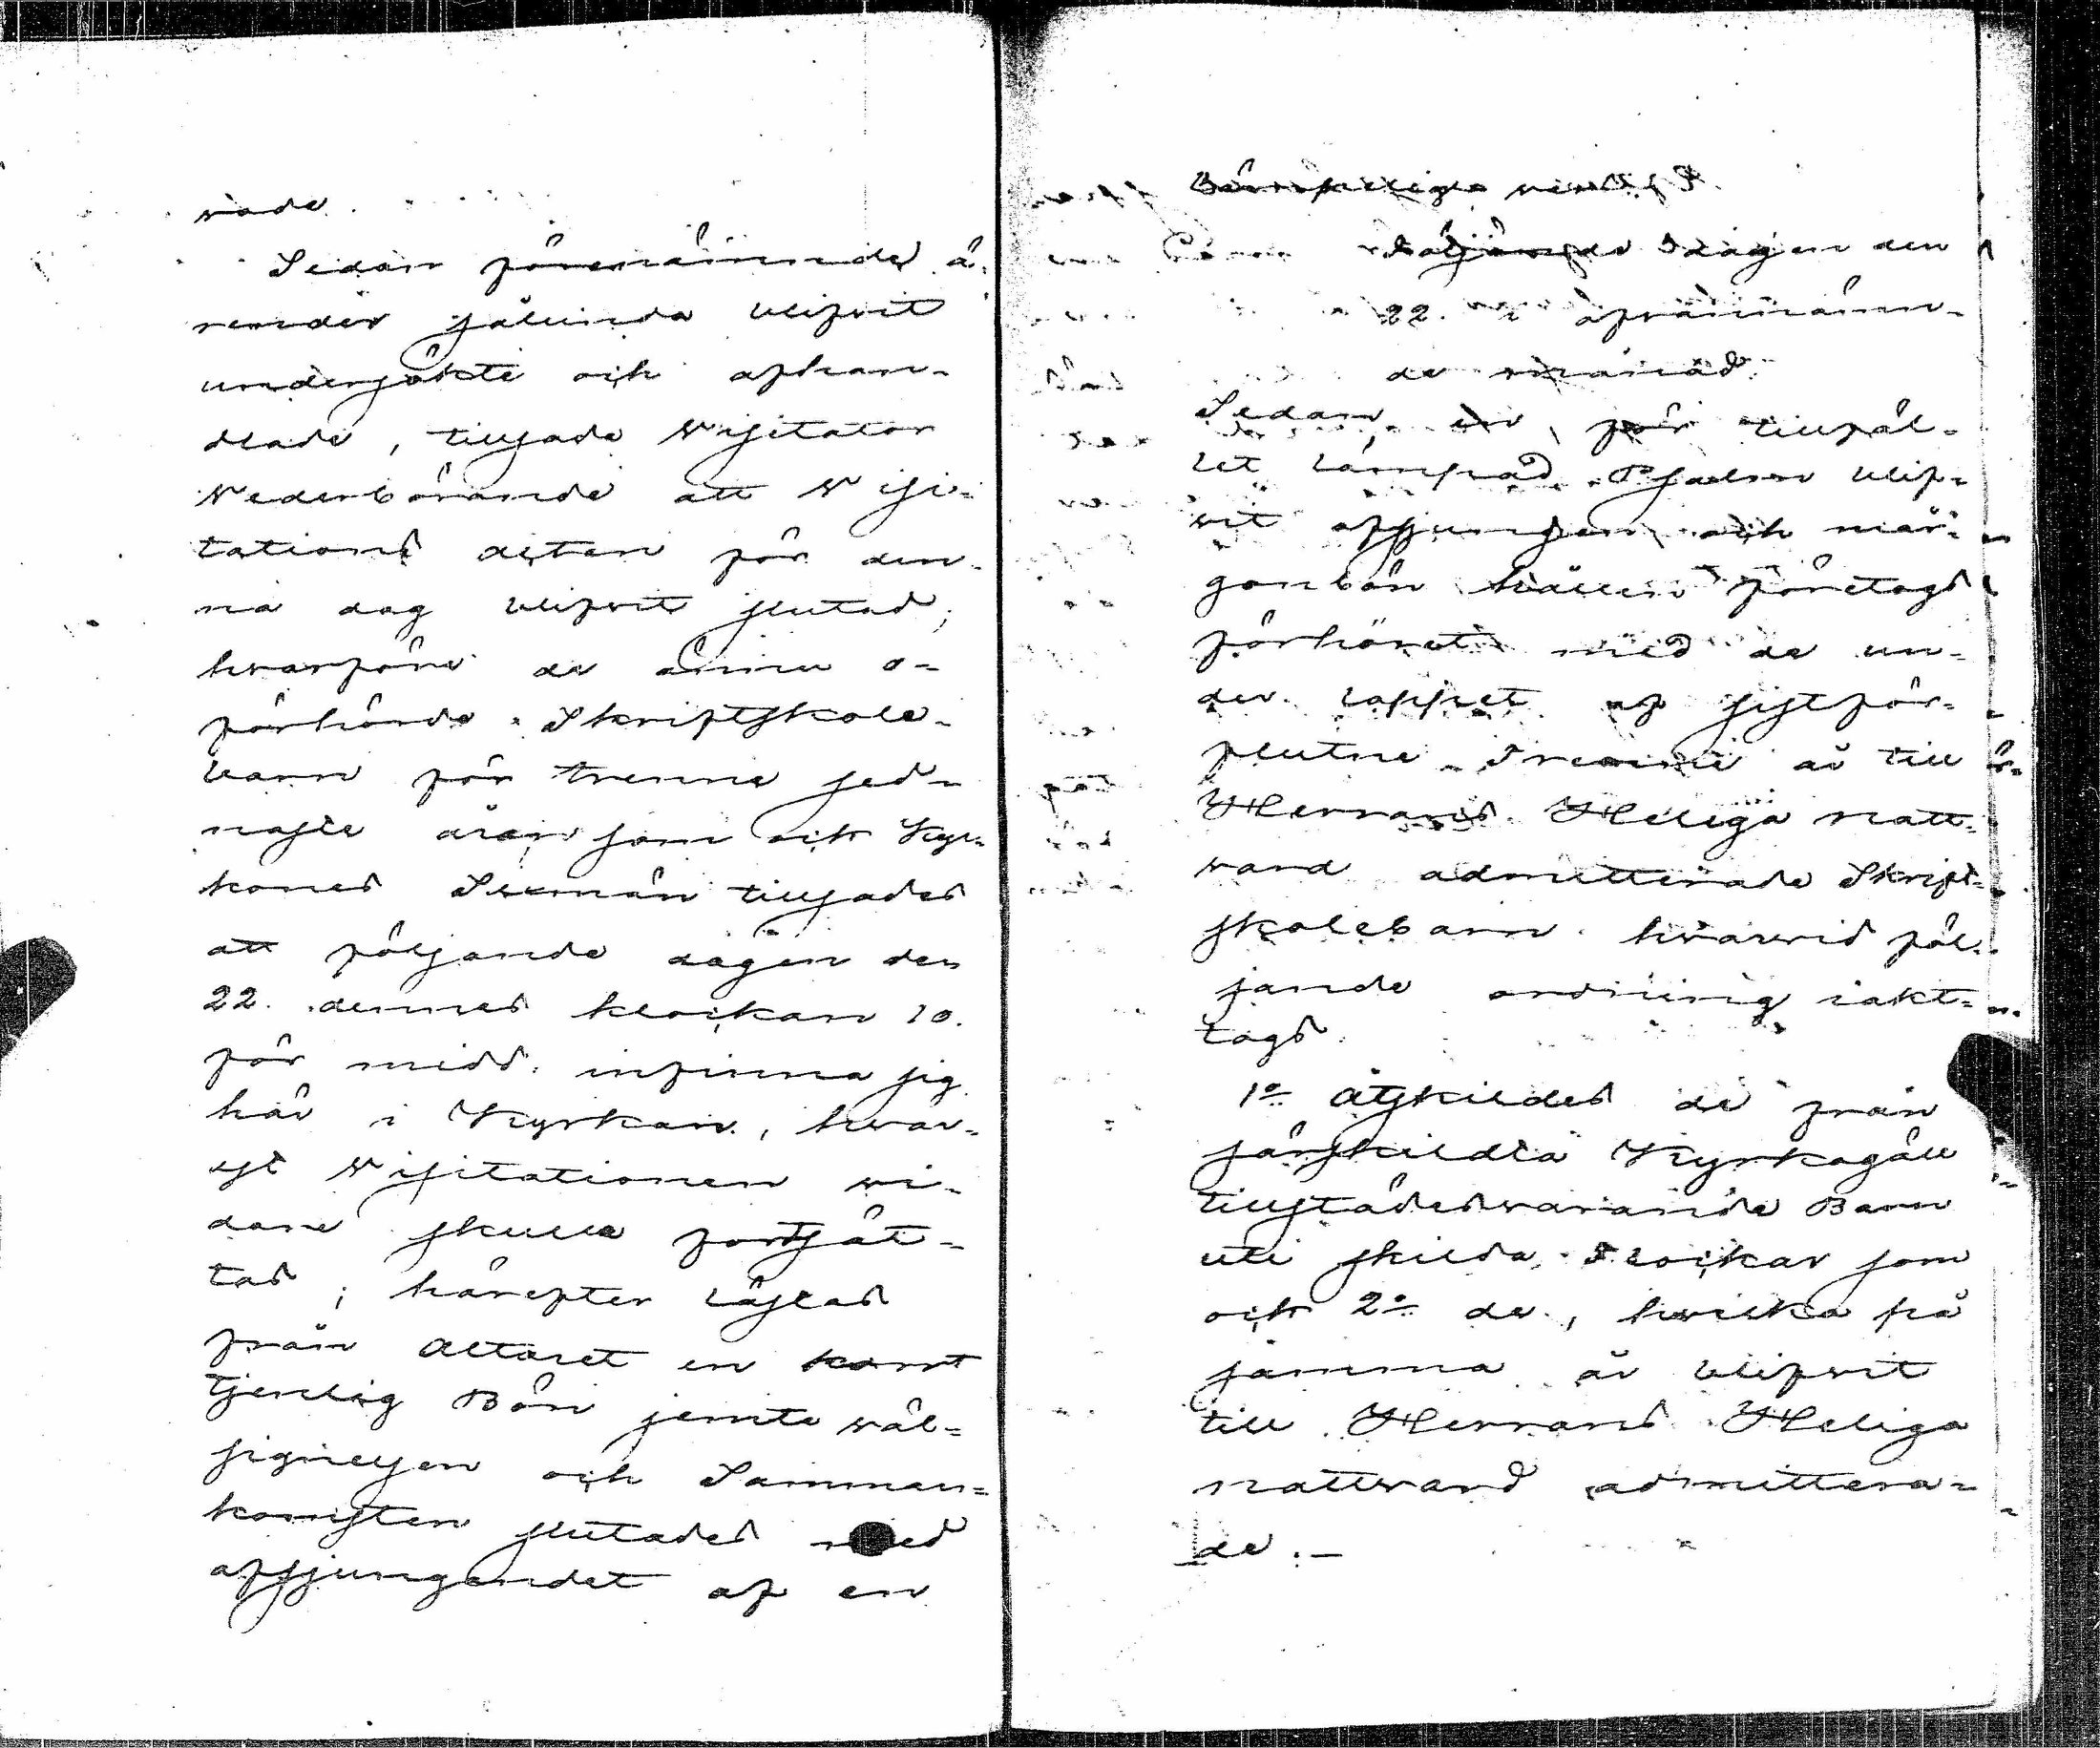 wade.
Sedan förenämnde ä-
render sålunda blifvit
undersökte och afhan-
dlade, tillsade Wisitator
Wederbörande att Wisi-
tations acten för den-
na dag blifvit slutad;
hvarföre de ännu o-
förhörde Skriftskole-
barn för trenne sed-
naste åren som och Kyr-
kones Sexmän tillsades
att följande dagen den
22. dennes klockan 10.
för midd. infinna sig
här i Kyrkan, hvar-
est Wisitationen wi-
dare skulle fortsät-
tas; härefter lästes
från Altaret en kort
tjenlig Bön jemte wäl-
signelsen och Samman-
komsten slutades med
afsjungandet af en
wers
Följande dagen den
22. i ofvannämn-
de månad.
Sedan en för tillfäl-
let lämpad Psalm blif-
vit afsjungen och mor-
gonbön hållen företogs
förhöret med de un-
der loppet af sistför-
flutne Trenne år till
Herrans Heliga natt-
vard admitterade Skrift-
skolebarn hvarvid föl-
jande ordning iakt-
togs.
1o åtskildes de från
särskildta Kyrkogäll
tillstädeswarande Barn
uti skilda Flockar som
och 2o de, hvilka på
samma år blifvit
till Herrans Heliga
nattvard admittera-
de.—